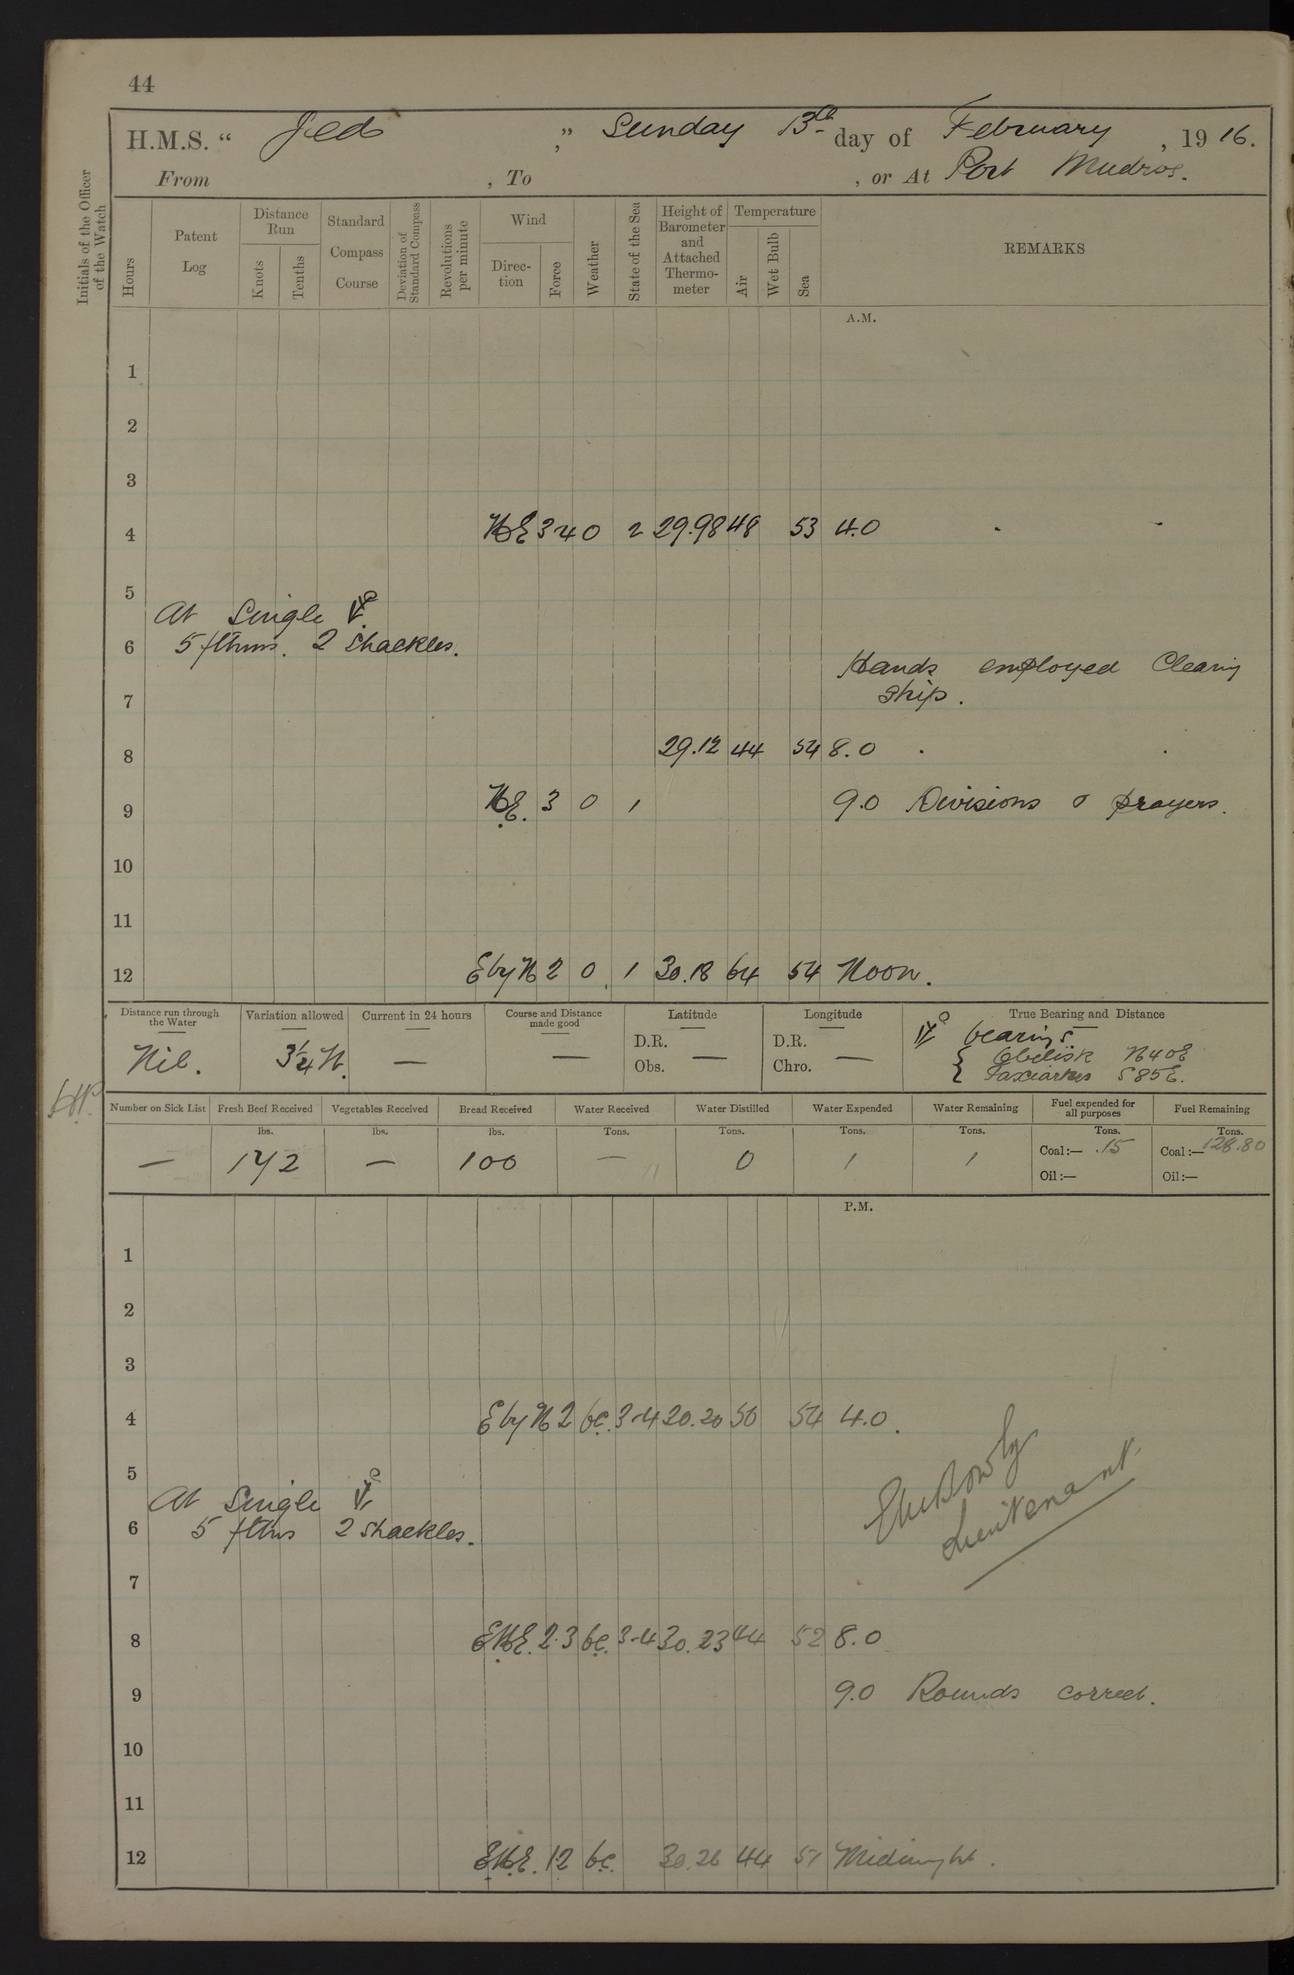 44
H.M.S. “ Jed ”, Sunday 13th day of February, 1916.
From , To , or At Port Mudros.
Initials of the Officer of the Watch
Hours
Patent Log
Distance Run
Knots
Tenths
Standard Compass Course
Deviation of Standard Compass
Revolutions per minute
Wind
Direction
Force
Weather
State of the Sea
Height of Barometer and Attached Thermometer
Temperature
Air
Wet Bulb
Sea
REMARKS
A.M.
1
2
3
4 NE 3-4 0 2 29.98 48 53 4.0
5
At Single
6 5 fthms. 2 Shackles.
Hands employed Clearing
7 Ship.
8 29.12 44 54 8.0
9 NE. 3 0 1 9.0 Divisions & prayers.
10
11
12 E by N 2 0 1 30.18 64 54 Noon.
Distance run through the Water
Variation allowed
Current in 24 hours
Course and Distance made good
Latitude
Longitude
True Bearing and Distance
Nil. 3¼ W. — — D.R. Obs. — D.R. Chro. — bearings
Obelisk N40E
S85E.
Number on Sick List
Fresh Beef Received
Vegetables Received
Bread Received
Water Received
Water Distilled
Water Expended
Water Remaining
Fuel expended for all purposes
Fuel Remaining
lbs. lbs. lbs. Tons. Tons. Tons. Tons. Tons. Tons.
— 172 — 100 — 0 1 1 Coal:— .15 Coal:— 128.80
Oil:— Oil:—
P.M.
1
2
3
4 E by N 2 bc. 3-4 30.20 50 54 4.0.
5
At Single
6 5 fthms 2 Shackles.
Lieutenant
7
8 ENE. 2.3 bc. 3-4 30.23 44 52 8.0
9 9.0 Rounds correct.
10
11
12 ENE. 12 bc. 30.26 44 51 Midnight.